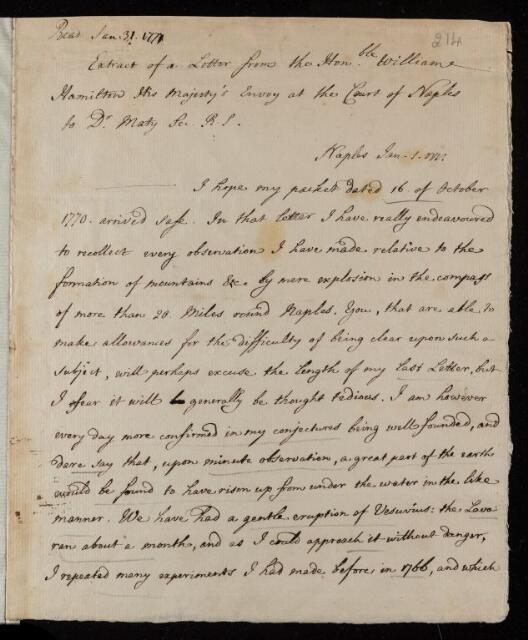 Read Jan. 31. 1771
214
Extract of a Letter from the Hon.ble William
Hamilton His Majesty's Envoy at the Court of Naples
to Dr Maty Sec. R. S.
Naples Jan. 1. 1771.
I hope my packet dated 16 of October
1770. arrived safe. In that letter I have really endeavoured
to recollect every observation I have made relative to the
formation of mountains &c by mere explosion in the compass
of more than 20 Miles round Naples. You, that are able to
make allowances for the difficulty of being clear upon such a
subject, will perhaps excuse the length of my last Letter, but
I fear it will generally be thought tedious. I am however
every day more confirmed in my conjectures being well founded, and
dare say that, upon minute observation, a great part of the earth
would be found to have risen up from under the water in the like
manner. We have had a gentle eruption of Vesuvius: the Lava
ran about a month, and as I could approach it without danger,
I repeated many experiments I had made before, in 1766, and which